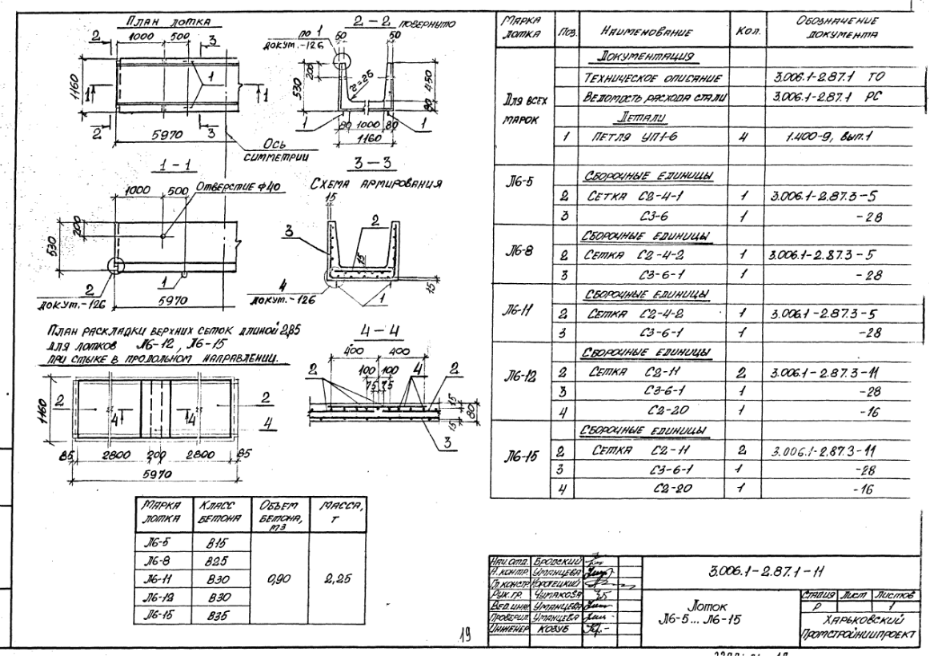 План лотка
2
1000
500
3
1160
1
1
1
2
3
5970
Ось симметрии
2-2 повернуто
по 1
докум.-126
50
50
530
200
480
80
80
1000
80
1160
1
1
1-1
1000
500
Отверстие ф40
530
200
2
докум.-126
1
5970
3-3
Схема армирования
15
2
3
15
4
докум.-126
1
15
План раскладки верхних сеток длиной 2,85
для лотков Л6-12, Л6-15
при стыке в продольном направлении.
1160
2
4
4
2
4
85
2800
200
2800
85
5970
4-4
400
400
100
100
75
75
2
4
2
15
15
80
3
Марка лотка
Класс бетона
Объем бетона, м3
Масса, т
Л6-5
В15
Л6-8
В25
Л6-11
В30
0,90
2,25
Л6-12
В30
Л6-15
В35
Марка лотка
Поз.
Наименование
Кол.
Обозначение документа
Для всех марок
Документация
Техническое описание
3.006.1-2.87.1 ТО
Ведомость расхода стали
3.006.1-2.87.1 РС
Детали
1
Петля УП1-6
4
1.400-9, вып.1
Л6-5
Сборочные единицы
2
Сетка С2-4-1
1
3.006.1-2.87.3-5
3
С3-6
1
-28
Л6-8
Сборочные единицы
2
Сетка С2-4-2
1
3.006.1-2.87.3-5
3
С3-6-1
1
-28
Л6-11
Сборочные единицы
2
Сетка С2-4-2
1
3.006.1-2.87.3-5
3
С3-6-1
1
-28
Л6-12
Сборочные единицы
2
Сетка С2-11
2
3.006.1-2.87.3-11
3
С3-6-1
1
-28
4
С2-20
1
-16
Л6-15
Сборочные единицы
2
Сетка С2-11
2
3.006.1-2.87.3-11
3
С3-6-1
1
-28
4
С2-20
1
-16
Нач.отд. Бродский
Н.контр. Уманцева
Гл.констр. Коротецкий
Рук.гр. Чумакова
Вед.инж. Уманцева
Проверил Уманцева
Инженер Козуб
3.006.1-2.87.1-11
Лоток
Л6-5... Л6-15
Стадия
Лист
Листов
Р
1
Харьковский
Промстройниипроект
19